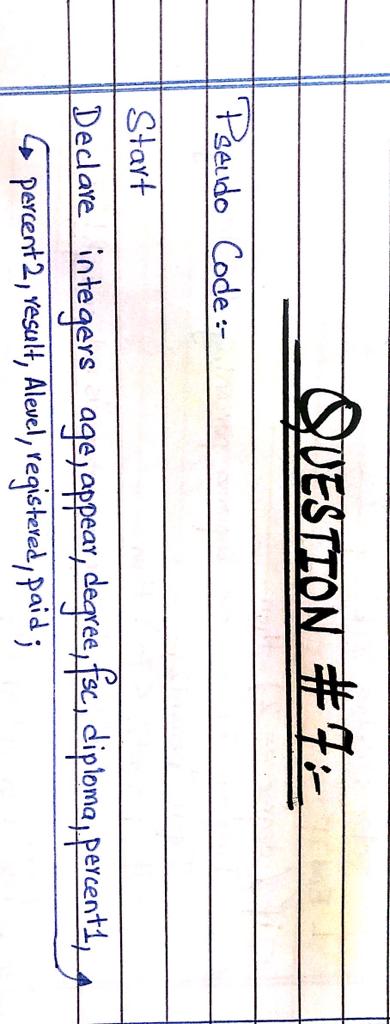 QUESTION #7:-
Pseudo Code:-
Start
Declare integers age, appear, degree, fsc, diploma, percent1,
percent2, result, Alevel, registered, paid;